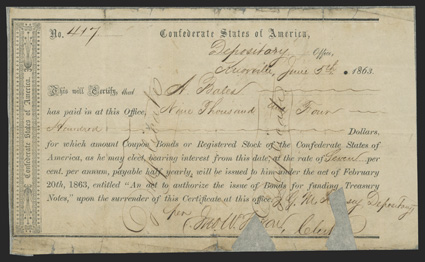 No. 417
Confederate States of America,
Depositary Office,
Knoxville, June 5th, 1863.
This will Certify, that A. Bales
has paid in at this Office, Nine Thousand Four
Hundred Dollars,
for which amount Coupon Bonds or Registered Stock of the Confederate States of
America, as he may elect, bearing interest from this date, at the rate of Seven per
cent. per annum, payable half yearly, will be issued to him under the act of February
20th, 1863, entitled "An act to authorize the issue of Bonds for funding Treasury
Notes," upon the surrender of this Certificate at this office.
J. G. M. Depositary
per Clerk
Confederate States of America.